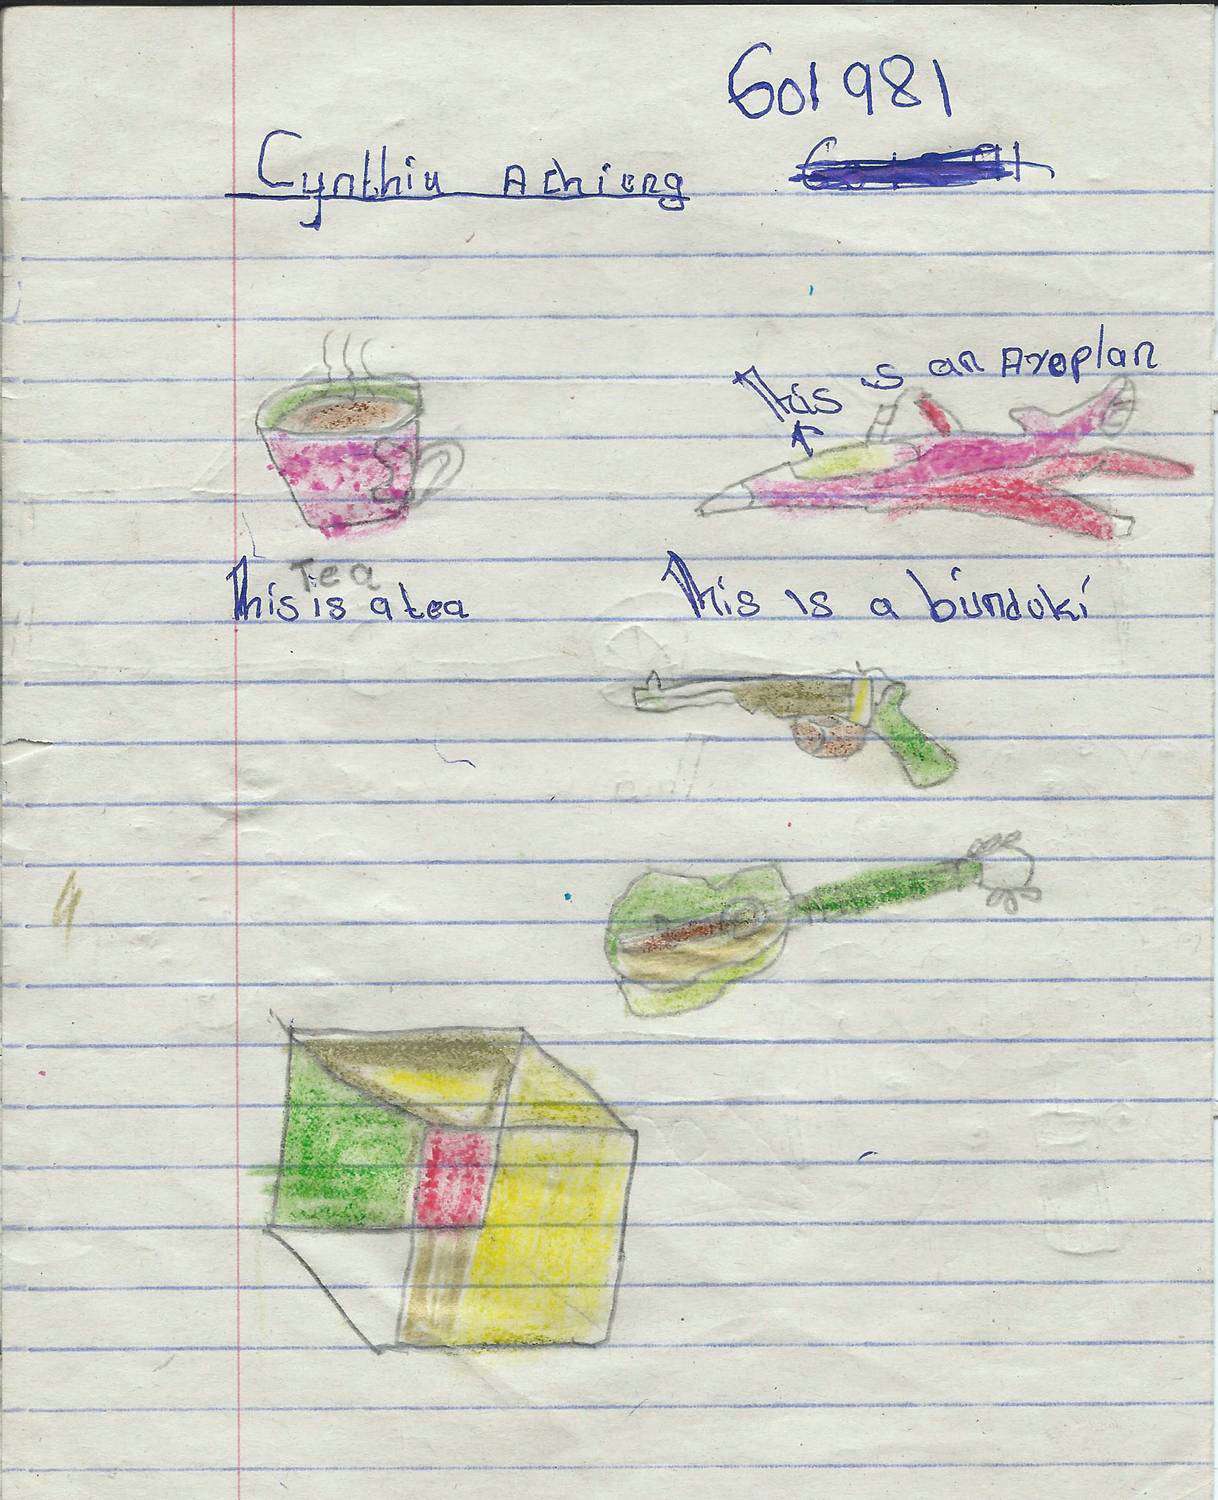 601981
Cynthia Achieng
This is an Aroplan
Tea
This is a tea
This is a bunduki